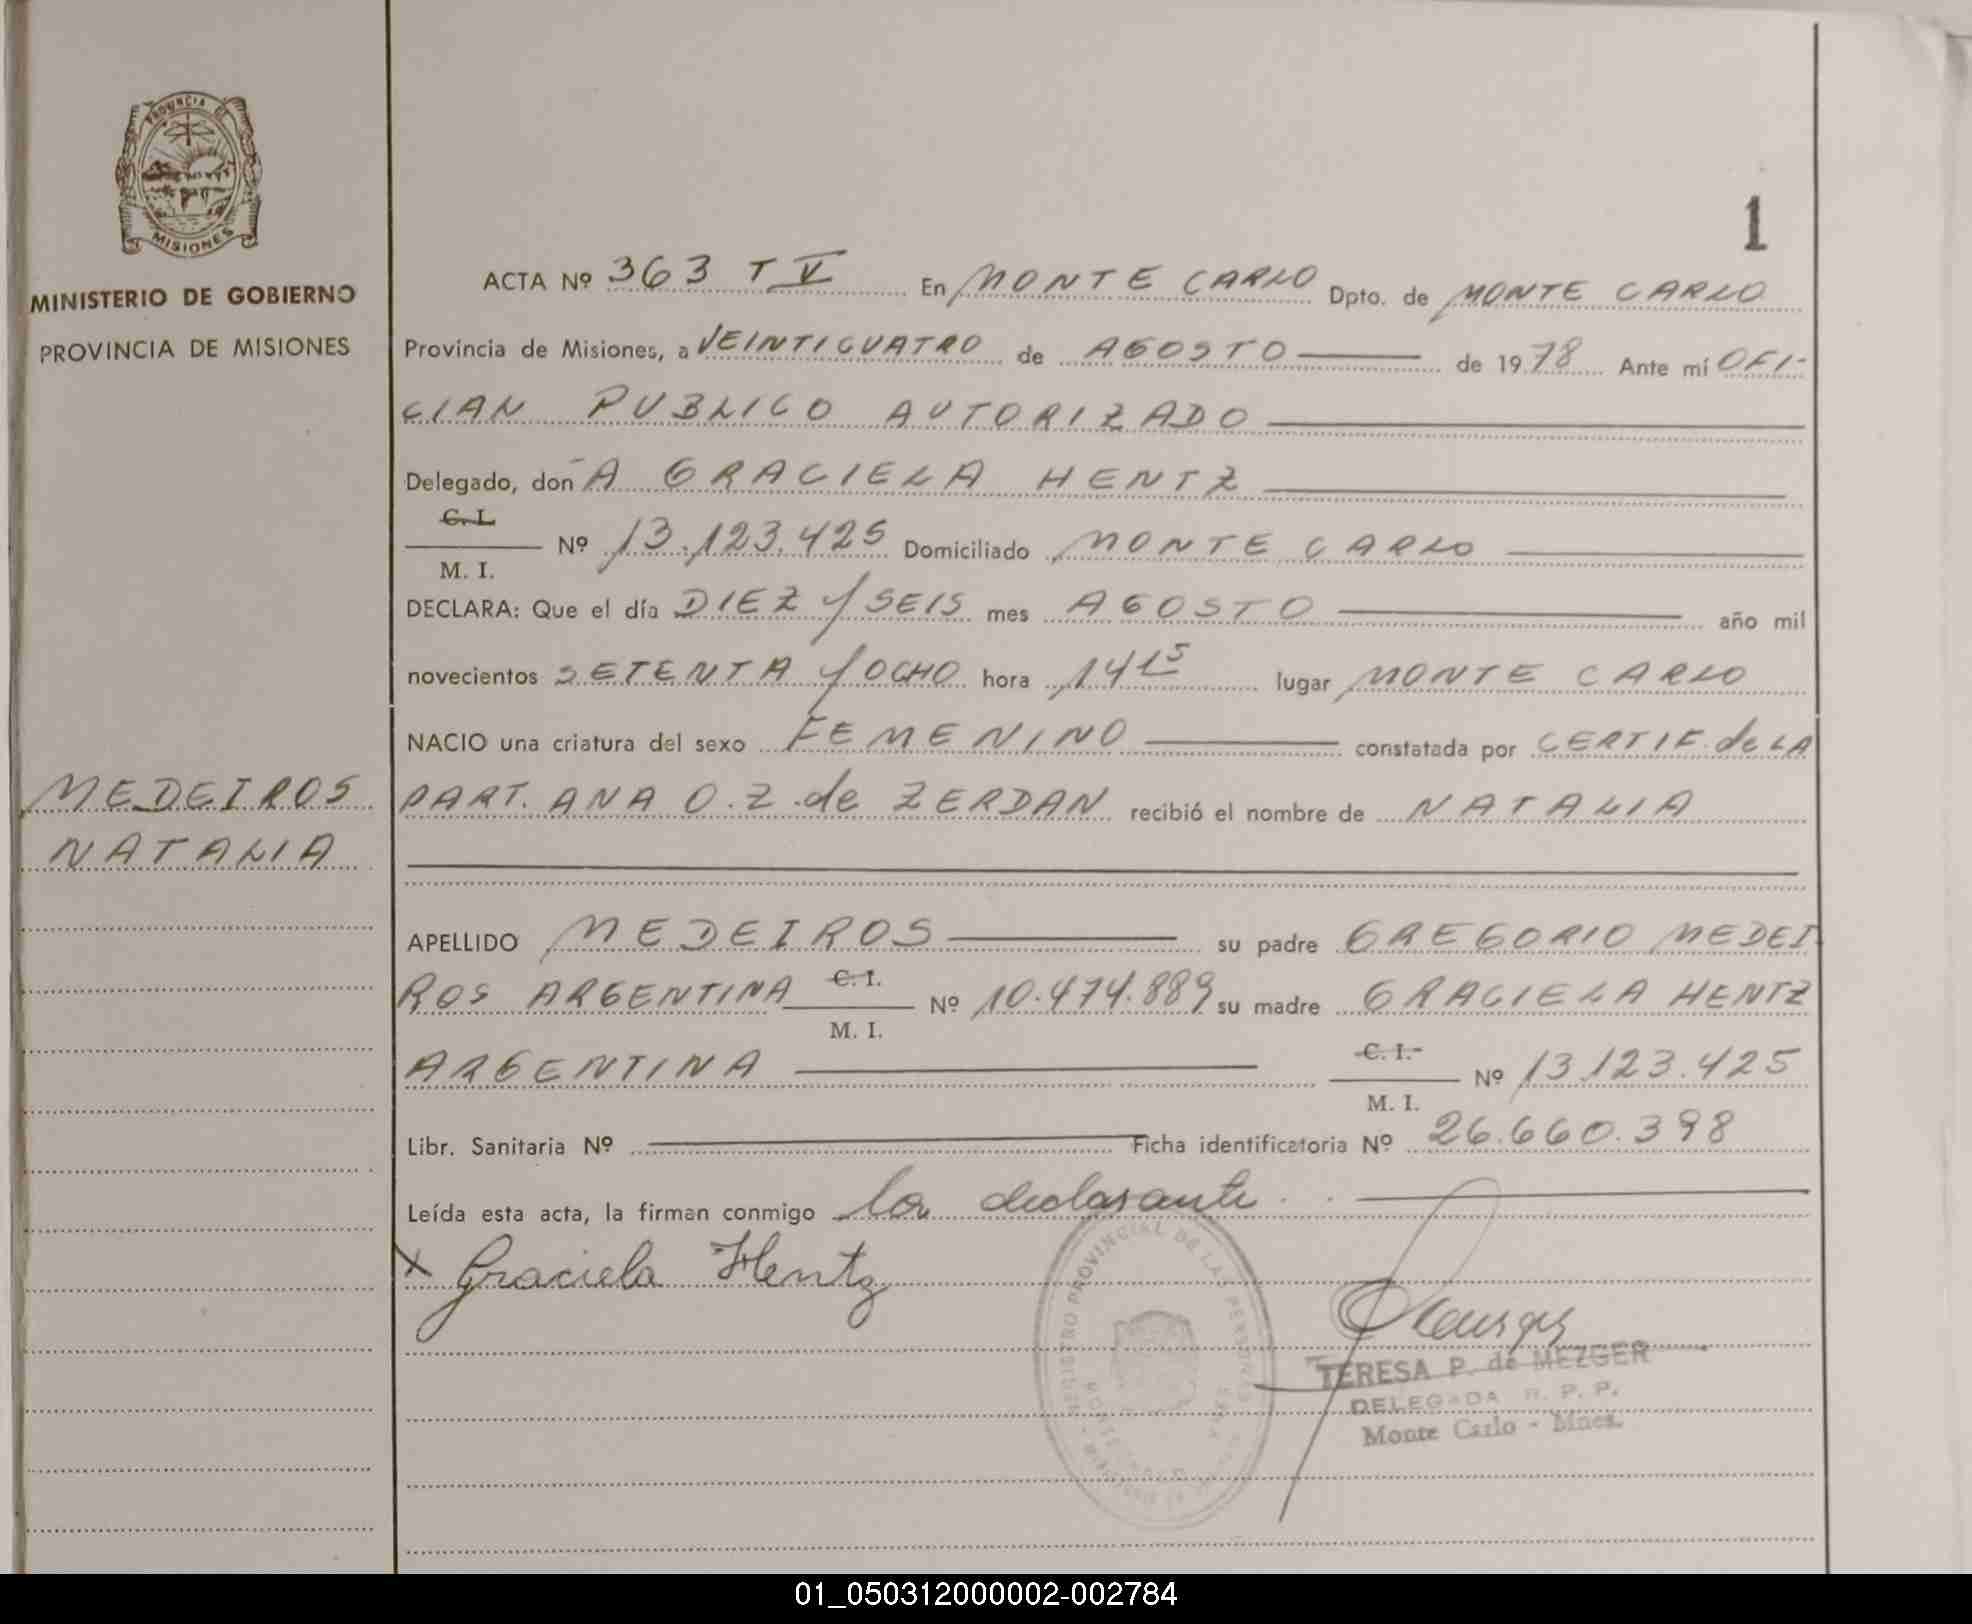 PROVINCIA DE
MISIONES
MINISTERIO DE GOBIERNO
PROVINCIA DE MISIONES
MEDEIROS
NATALIA
1
ACTA Nº 363 T V En MONTE CARLO Dpto. de MONTE CARLO
Provincia de Misiones, a VEINTICUATRO de AGOSTO de 1978 Ante mí OFI-
CIAL PUBLICO AUTORIZADO
Delegado, don A GRACIELA HENTZ
C. I.
Nº 13.123.425 Domiciliado MONTE CARLO
M. I.
DECLARA: Que el día DIEZ Y SEIS mes AGOSTO año mil
novecientos SETENTA Y OCHO hora 14 15 lugar MONTE CARLO
NACIO una criatura del sexo FEMENINO constatada por CERTIF. de LA
PART. ANA O. Z. de ZERDAN recibió el nombre de NATALIA
APELLIDO MEDEIROS su padre GREGORIO MEDEI
ROS ARGENTINA C. I. Nº 10.474.889 su madre GRACIELA HENTZ
M. I.
ARGENTINA C. I. Nº 13.123.425
M. I.
Libr. Sanitaria Nº Ficha identificatoria Nº 26.660.398
Leída esta acta, la firman conmigo la declarante.
X Graciela Hentz
REGISTRO PROVINCIAL DE LAS PERSONAS
TERESA P. de MEZGER
DELEGADA R. P. P.
Monte Carlo - Mnes.
01_050312000002-002784